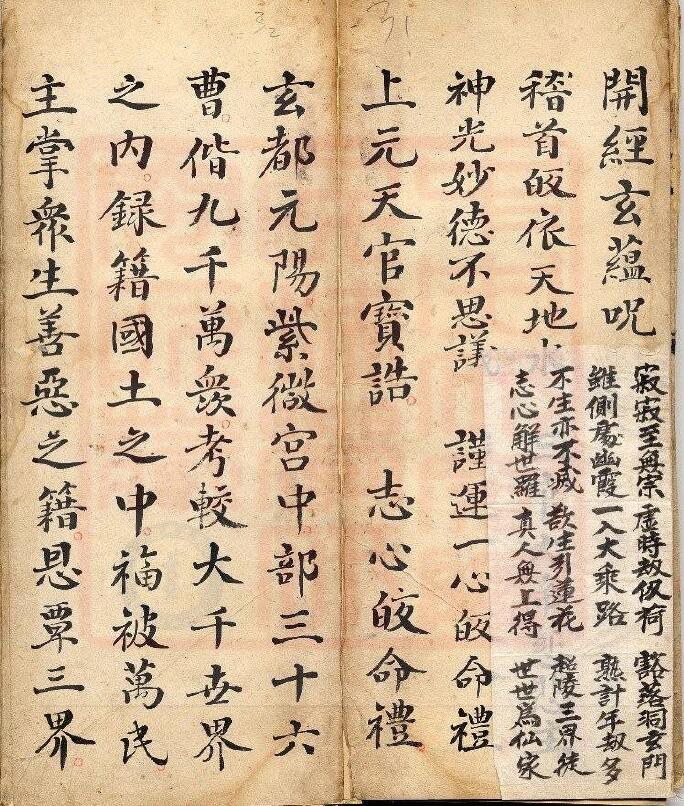 開經玄蘊呪
寂寂至無宗 虛時劫仞荷 豁落洞玄門
雖側處幽霞 一入大乘路 熟計年劫多
不生亦不滅 欲生引蓮花 超陵三界徒
志心解世羅 真人無上得 世世爲仙家
稽首皈依天地
神光妙德不思議 謹運一心皈命禮
上元天官寶誥 志心皈命禮
玄都元陽紫微宮中部三十六
曹偕九千萬衆考較大千世界
之内録籍國土之中福被萬民
主掌衆生善惡之籍恩覃三界